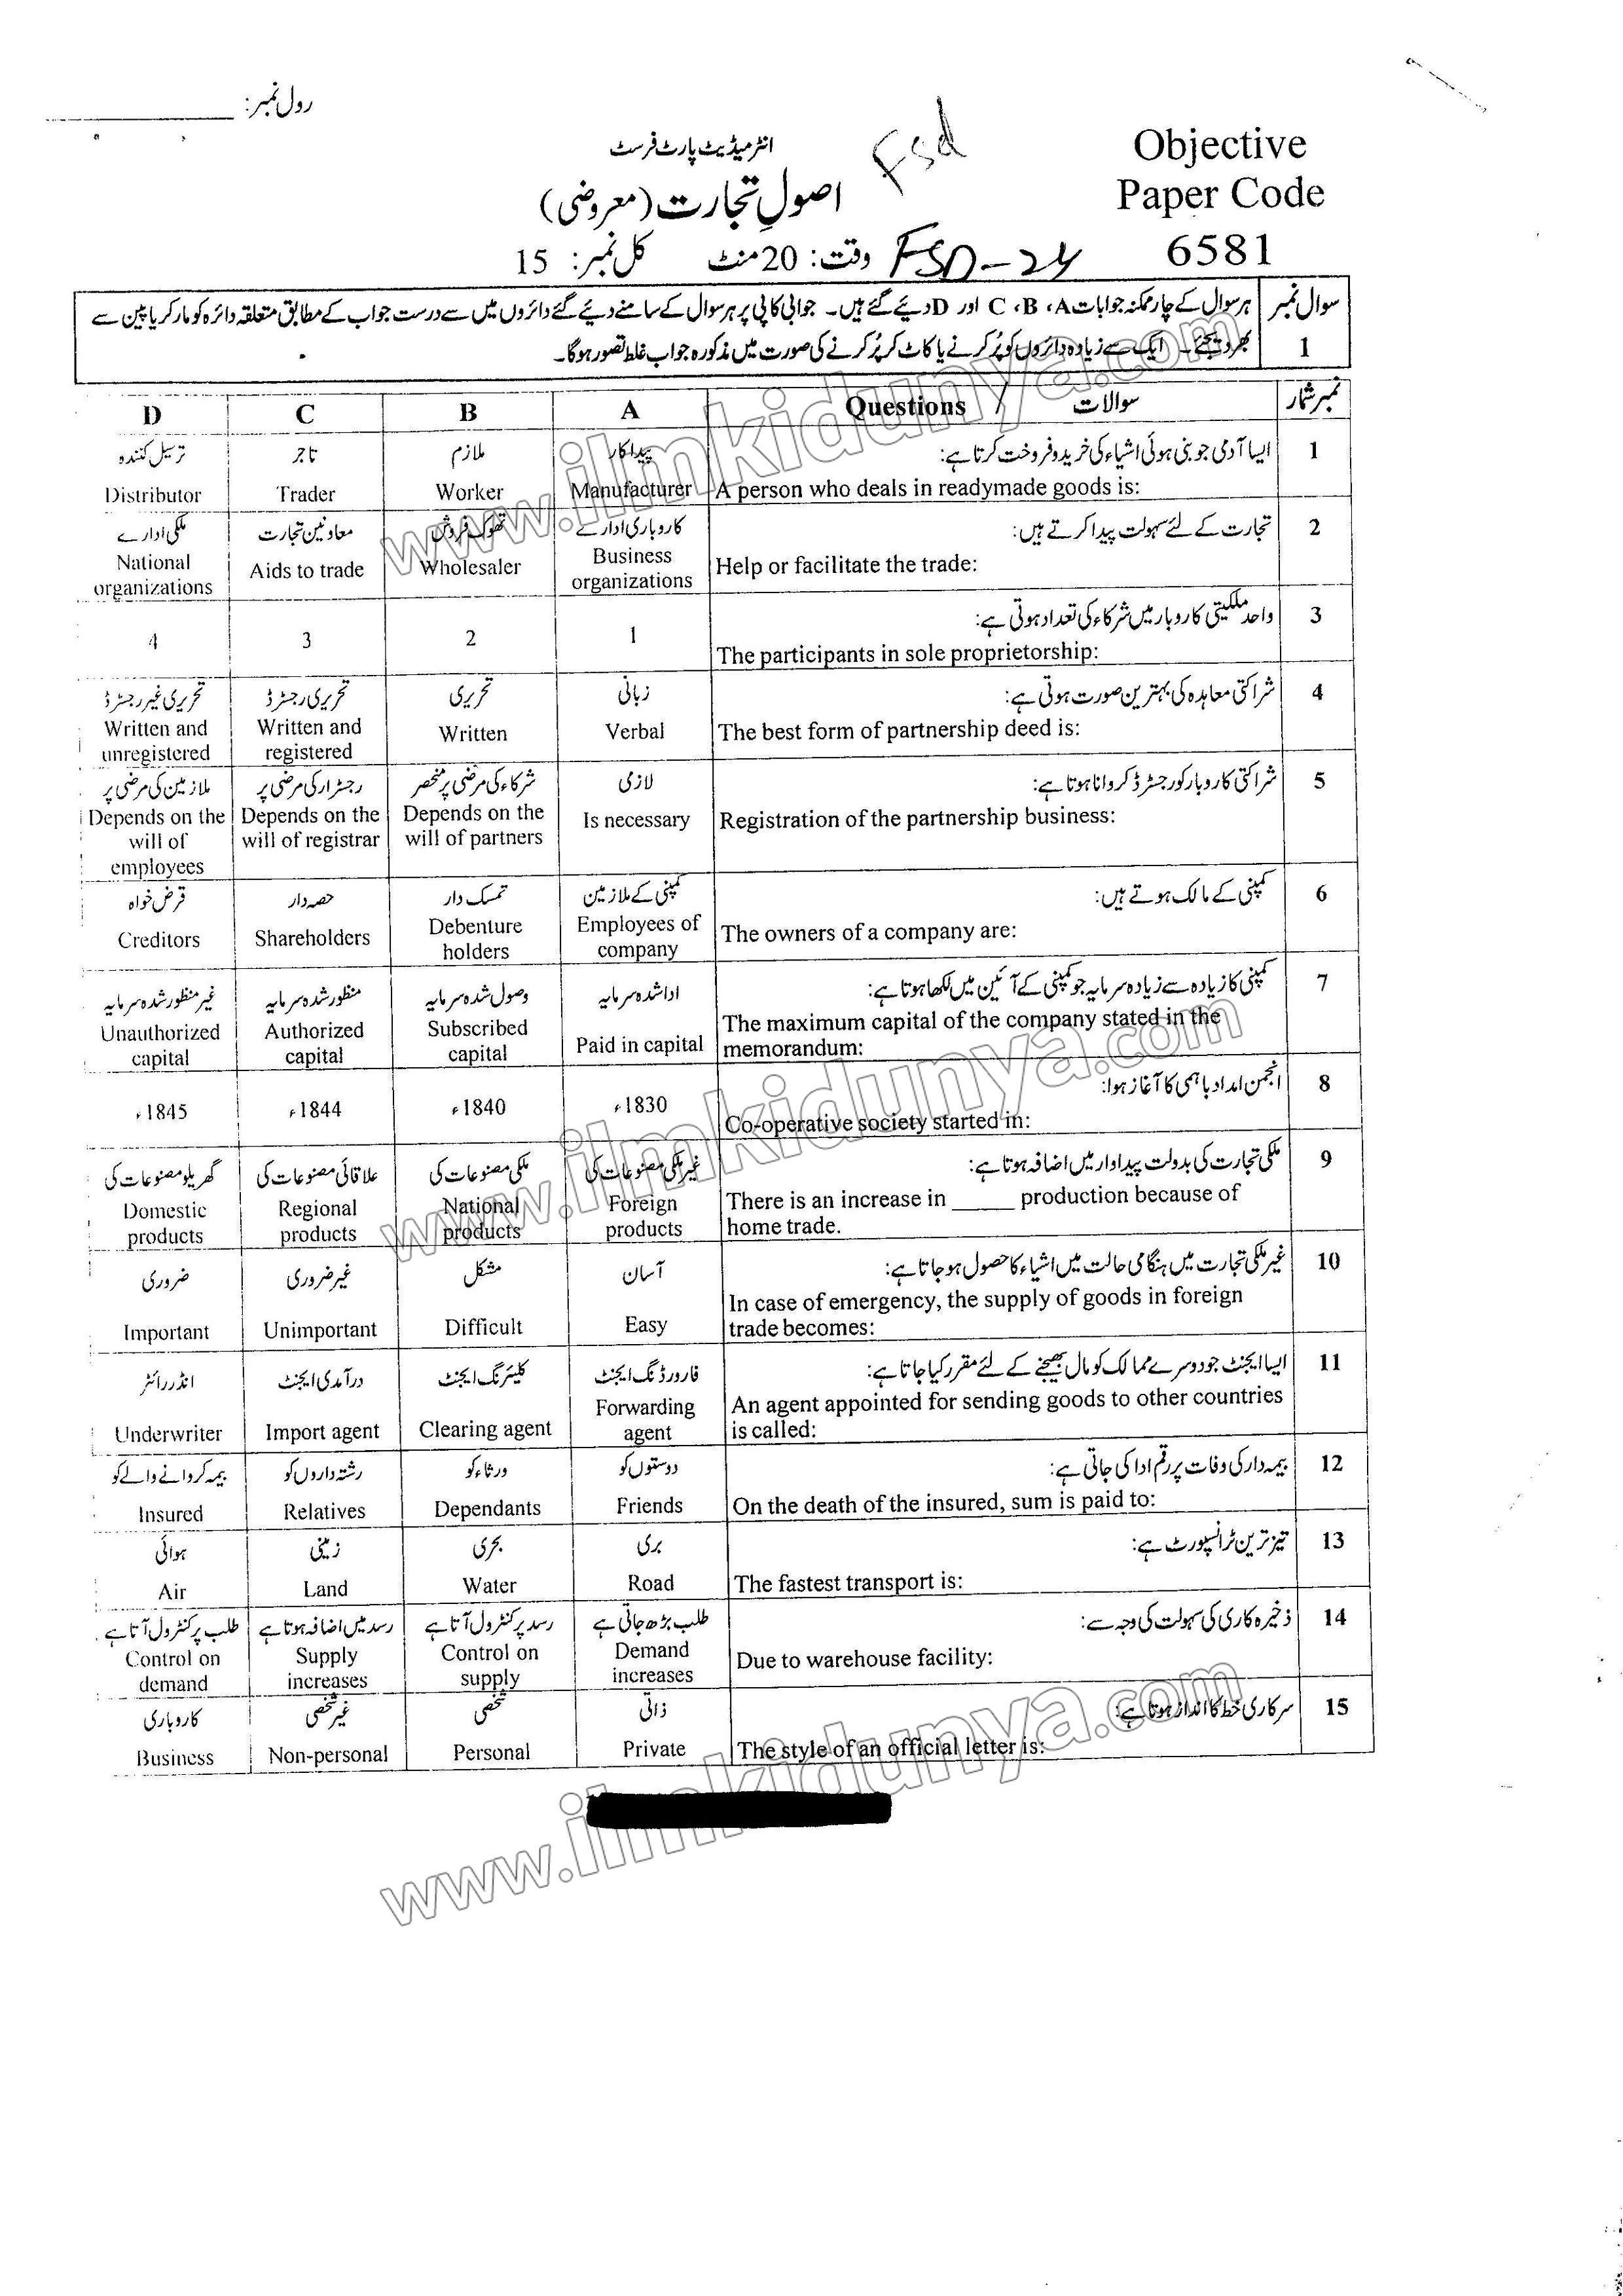 رول نمبر: ____________
انٹرمیڈیٹ پارٹ فرسٹ
Fsd
Objective
Paper Code
6581
اصولِ تجارت (معروضی)
وقت: 20 منٹ کل نمبر: 15
FSD-24
سوال نمبر 1
ہر سوال کے چار ممکنہ جوابات A، B، C اور D دیئے گئے ہیں۔ جوابی کاپی پر ہر سوال کے سامنے دیئے گئے دائروں میں سے درست جواب کے مطابق متعلقہ دائرہ کو مارکر یا پین سے
بھر دیجئے۔ ایک سے زیادہ دائروں کو پُر کرنے یا کاٹ کر پُر کرنے کی صورت میں مذکورہ جواب غلط تصور ہوگا۔
نمبر شمار سوالات / Questions A B C D
1 ایسا آدمی جو بنی ہوئی اشیاء کی خرید و فروخت کرتا ہے: پیداکار ملازم تاجر ترسیل کنندہ
A person who deals in readymade goods is: Manufacturer Worker Trader Distributor
2 تجارت کے لئے سہولت پیدا کرتے ہیں: کاروباری ادارے تھوک فروش معاونین تجارت ملکی ادارے
Help or facilitate the trade: Business organizations Wholesaler Aids to trade National organizations
3 واحد ملکیتی کاروبار میں شرکاء کی تعداد ہوتی ہے:
The participants in sole proprietorship: 1 2 3 4
4 شراکتی معاہدہ کی بہترین صورت ہوتی ہے: زبانی تحریری تحریری رجسٹرڈ تحریری غیر رجسٹرڈ
The best form of partnership deed is: Verbal Written Written and registered Written and unregistered
5 شراکتی کاروبار کو رجسٹرڈ کروانا ہوتا ہے: لازمی شرکاء کی مرضی پر منحصر رجسٹرار کی مرضی پر ملازمین کی مرضی پر
Registration of the partnership business: Is necessary Depends on the will of partners Depends on the will of registrar Depends on the will of employees
6 کمپنی کے مالک ہوتے ہیں: کمپنی کے ملازمین تمسک دار حصہ دار قرض خواہ
The owners of a company are: Employees of company Debenture holders Shareholders Creditors
7 کمپنی کا زیادہ سے زیادہ سرمایہ جو کمپنی کے آئین میں لکھا ہوتا ہے: ادا شدہ سرمایہ وصول شدہ سرمایہ منظور شدہ سرمایہ غیر منظور شدہ سرمایہ
The maximum capital of the company stated in the memorandum: Paid in capital Subscribed capital Authorized capital Unauthorized capital
8 انجمن امداد باہمی کا آغاز ہوا:
Co-operative society started in: 1830ء 1840ء 1844ء 1845ء
9 ملکی تجارت کی بدولت پیداوار میں اضافہ ہوتا ہے: غیر ملکی مصنوعات کی ملکی مصنوعات کی علاقائی مصنوعات کی گھریلو مصنوعات کی
There is an increase in _____ production because of home trade. Foreign products National products Regional products Domestic products
10 غیر ملکی تجارت میں ہنگامی حالت میں اشیاء کا حصول ہو جاتا ہے: آسان مشکل غیر ضروری ضروری
In case of emergency, the supply of goods in foreign trade becomes: Easy Difficult Unimportant Important
11 ایسا ایجنٹ جو دوسرے ممالک کو مال بھیجنے کے لئے مقرر کیا جاتا ہے: فارورڈنگ ایجنٹ کلیئرنگ ایجنٹ درآمدی ایجنٹ انڈر رائٹر
An agent appointed for sending goods to other countries is called: Forwarding agent Clearing agent Import agent Underwriter
12 بیمہ دار کی وفات پر رقم ادا کی جاتی ہے: دوستوں کو ورثاء کو رشتہ داروں کو بیمہ کروانے والے کو
On the death of the insured, sum is paid to: Friends Dependants Relatives Insured
13 تیز ترین ٹرانسپورٹ ہے: بری بحری زمینی ہوائی
The fastest transport is: Road Water Land Air
14 ذخیرہ کاری کی سہولت کی وجہ سے: طلب بڑھ جاتی ہے رسد پر کنٹرول آتا ہے رسد میں اضافہ ہوتا ہے طلب پر کنٹرول آتا ہے
Due to warehouse facility: Demand increases Control on supply Supply increases Control on demand
15 سرکاری خط کا انداز ہوتا ہے: ذاتی شخصی غیر شخصی کاروباری
The style of an official letter is: Private Personal Non-personal Business
www.ilmkidunya.com
www.ilmkidunya.com
www.ilmkidunya.com